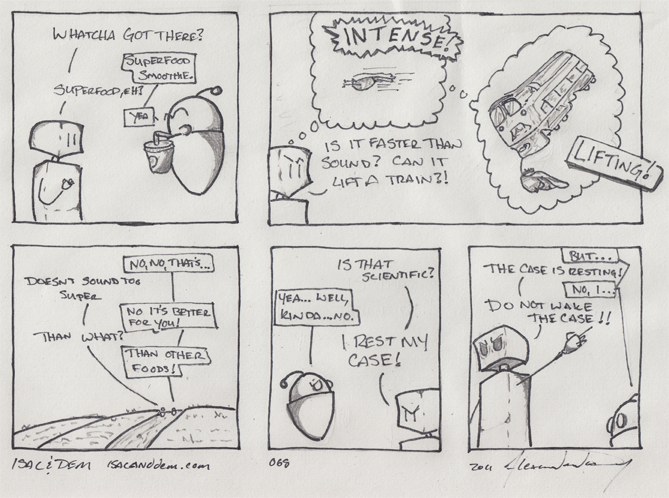 WHATCHA GOT THERE?
SUPERFOOD
SMOOTHIE.
SUPERFOOD, EH?
YEA
INTENSE!
IS IT FASTER THAN
SOUND? CAN IT
LIFT A TRAIN?!
LIFTING!
NO, NO, THAT'S...
DOESN'T SOUND TOO
SUPER
NO IT'S BETTER
FOR YOU!
THAN WHAT?
THAN OTHER
FOODS!
IS THAT
SCIENTIFIC?
YEA... WELL,
KINDA...NO.
I REST MY
CASE!
BUT...
THE CASE IS RESTING!
NO, I...
DO NOT WAKE
THE CASE!!
ISAC & DEM isacanddem.com
068
2011